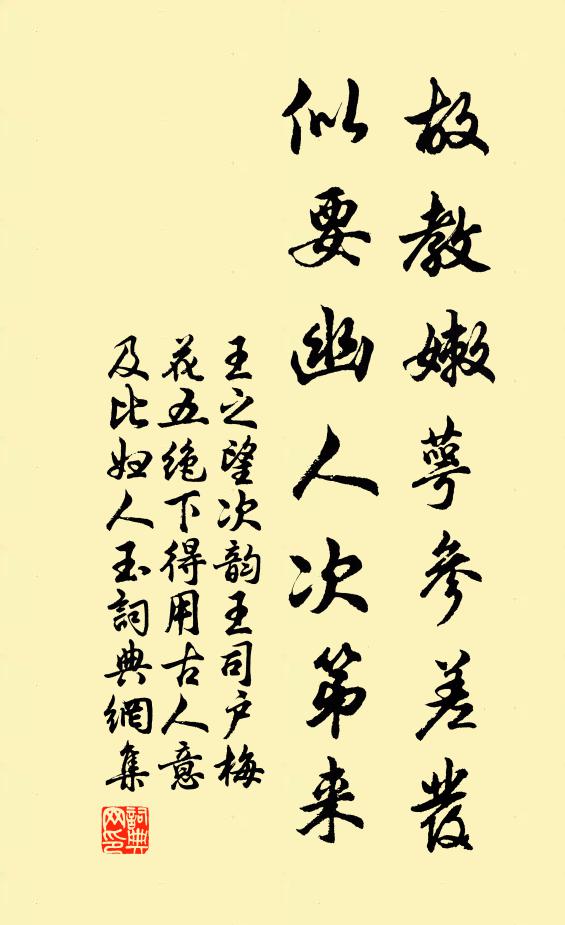 故教嫩萼參差發
似要幽人次第来
王之望次韵王司户梅
花五绝下得用古人意
及比妇人玉詞典網集
詞典网印